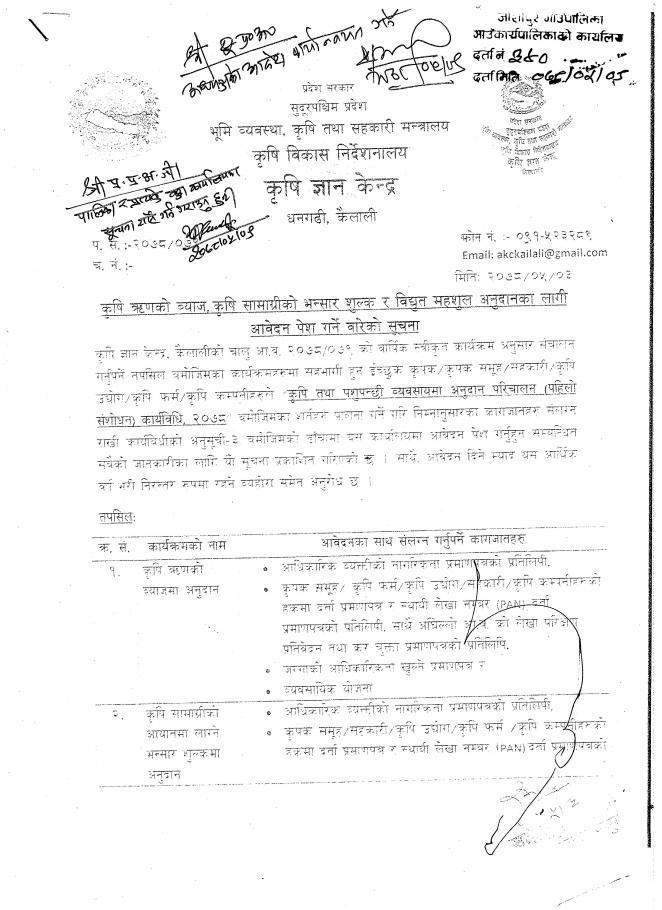 जोशीपुर गाउँपालिका
गाउँकार्यपालिकाको कार्यालय
दर्ता नं ३८०
दर्ता मिति ०७८/०५/०८
प्रदेश सरकार
सुदूरपश्चिम प्रदेश
भूमि व्यवस्था, कृषि तथा सहकारी मन्त्रालय
कृषि विकास निर्देशनालय
कृषि ज्ञान केन्द्र
धनगढी, कैलाली
प. सं.:-२०७८/०७९
च. नं.:-
फोन नं. :- ०९१-५२३२८९
Email: akckailali@gmail.com
मिति: २०७८/०५/०३
कृषि ऋणको ब्याज, कृषि सामाग्रीको भन्सार शुल्क र विद्युत महशुल अनुदानका लागी
आवेदन पेश गर्ने बारेको सुचना
कृषि ज्ञान केन्द्र, कैलालीको चालु आ.व. २०७८/०७९ को वार्षिक स्वीकृत कार्यक्रम अनुसार संचालन
गर्नुपर्ने तपसिल बमोजिमका कार्यक्रमहरुमा सहभागी हुन इच्छुक कृषक/कृषक समूह/सहकारी/कृषि
उद्योग/कृषि फर्म/कृषि कम्पनीहरुले "कृषि तथा पशुपन्छी व्यवसायमा अनुदान परिचालन (पहिलो
संशोधन) कार्यविधि, २०७८" बमोजिमका शर्तहरु पालना गर्ने गरि निम्नानुसारका कागजातहरु संलग्न
राखी कार्यविधीको अनुसूची-३ बमोजिमको ढाँचामा यस कार्यालयमा आवेदन पेश गर्नुहुन सम्बन्धित
सबैको जानकारीका लागि यो सुचना प्रकाशित गरिएको छ । साथै, आवेदन दिने म्याद यस आर्थिक
वर्ष भरी निरन्तर रुपमा रहने व्यहोरा समेत अनुरोध छ ।
तपसिल:
क्र. सं. कार्यक्रमको नाम आवेदनका साथ संलग्न गर्नुपर्ने कागजातहरु
१. कृषि ऋणको ब्याजमा अनुदान
• आधिकारिक व्यक्तीको नागरिकता प्रमाणपत्रको प्रतिलिपी.
• कृषक समूह/ कृषि फर्म/कृषि उद्योग/सहकारी/कृषि कम्पनीहरुको
हकमा दर्ता प्रमाणपत्र र स्थायी लेखा नम्बर (PAN) दर्ता
प्रमाणपत्रको प्रतिलिपी, साथै अघिल्लो आ.व. को लेखा परिक्षण
प्रतिवेदन तथा कर चुक्ता प्रमाणपत्रको प्रतिलिपि.
• जग्गाको आधिकारिकता खुल्ने प्रमाणपत्र र
• व्यवसायिक योजना
२. कृषि सामाग्रीको
आयातमा लाग्ने
भन्सार शुल्कमा
अनुदान
• आधिकारिक व्यक्तीको नागरिकता प्रमाणपत्रको प्रतिलिपी.
• कृषक समूह/सहकारी/कृषि उद्योग/कृषि फर्म /कृषि कम्पनीहरुको
हकमा दर्ता प्रमाणपत्र र स्थायी लेखा नम्बर (PAN) दर्ता प्रमाणपत्रको